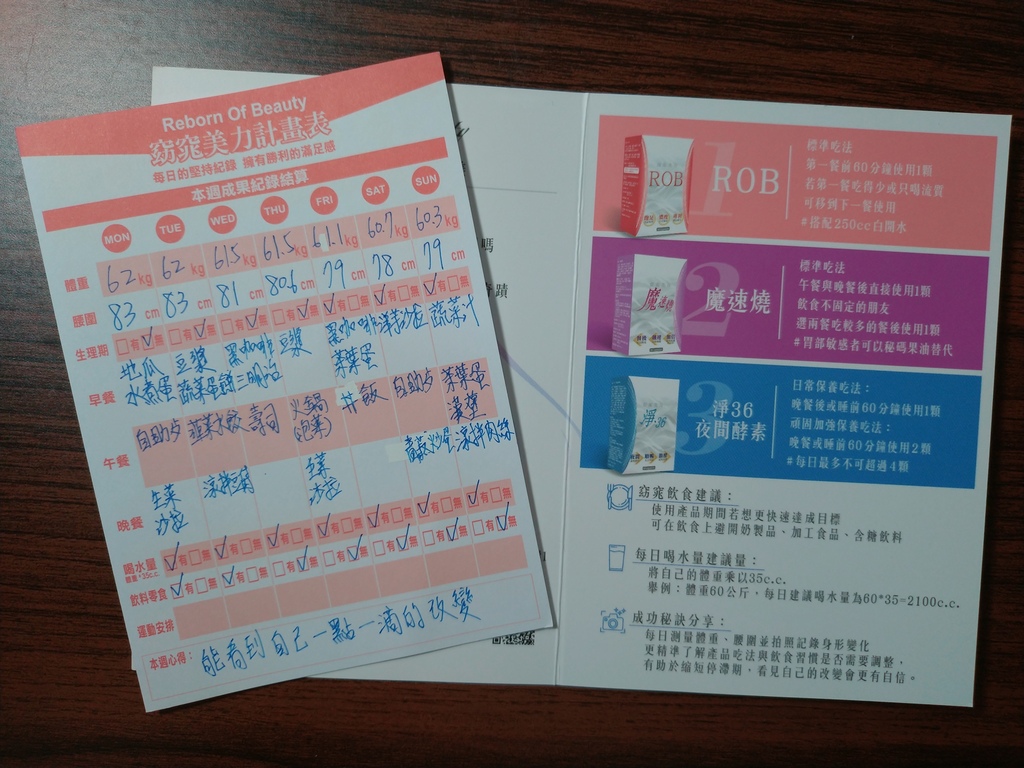 Reborn Of Beauty
窈窕美力計畫表
每日的堅持紀錄 擁有勝利的滿足感
本週成果紀錄結算
MON TUE WED THU FRI SAT SUN
體重 62kg 62kg 61.5kg 61.5kg 61.1kg 60.7kg 60.3kg
腰圍 83cm 83cm 81cm 80.6cm 79cm 78cm 79cm
生理期 □有□無 □有□無 □有□無 □有□無 □有□無 □有□無 □有□無
早餐 地瓜 水煮蛋 豆漿 蔬菜蛋餅 黑咖啡 三明治 豆漿 黑咖啡 茶葉蛋 蔬菜汁
午餐 自助ㄅ 水餃 壽司 火鍋 (泡菜) 丼飯 自助ㄅ 茶葉蛋
晚餐 生菜 沙拉 生菜 沙拉 涼拌肉絲
喝水量 體重*35c.c. □有□無 □有□無 □有□無 □有□無 □有□無 □有□無 □有□無
飲料零食 □有□無 □有□無 □有□無 □有□無 □有□無 □有□無 □有□無
運動安排
本週心得： 能看到自己一點一滴的改變
嗎
蹟
ROB
1
ROB
標準吃法
第一餐前60分鐘使用1顆
若第一餐吃得少或只喝流質
可移到下一餐使用
#搭配250cc白開水
魔速燒
2
魔速燒
標準吃法
午餐與晚餐後直接使用1顆
飲食不固定的朋友
選兩餐吃較多的餐後使用1顆
#胃部敏感者可以秘碼果油替代
淨36
3
淨36
夜間酵素
日常保養吃法：
晚餐後或睡前60分鐘使用1顆
頑固加強保養吃法：
晚餐或睡前60分鐘使用2顆
#每日最多不可超過4顆
窈窕飲食建議：
使用產品期間若想更快速達成目標
可在飲食上避開奶製品、加工食品、含糖飲料
每日喝水量建議量：
將自己的體重乘以35c.c.
舉例：體重60公斤，每日建議喝水量為60*35=2100c.c.
成功秘訣分享：
每日測量體重、腰圍並拍照記錄身形變化
更精準了解產品吃法與飲食習慣是否需要調整，
有助於縮短停滯期，看見自己的改變會更有自信。